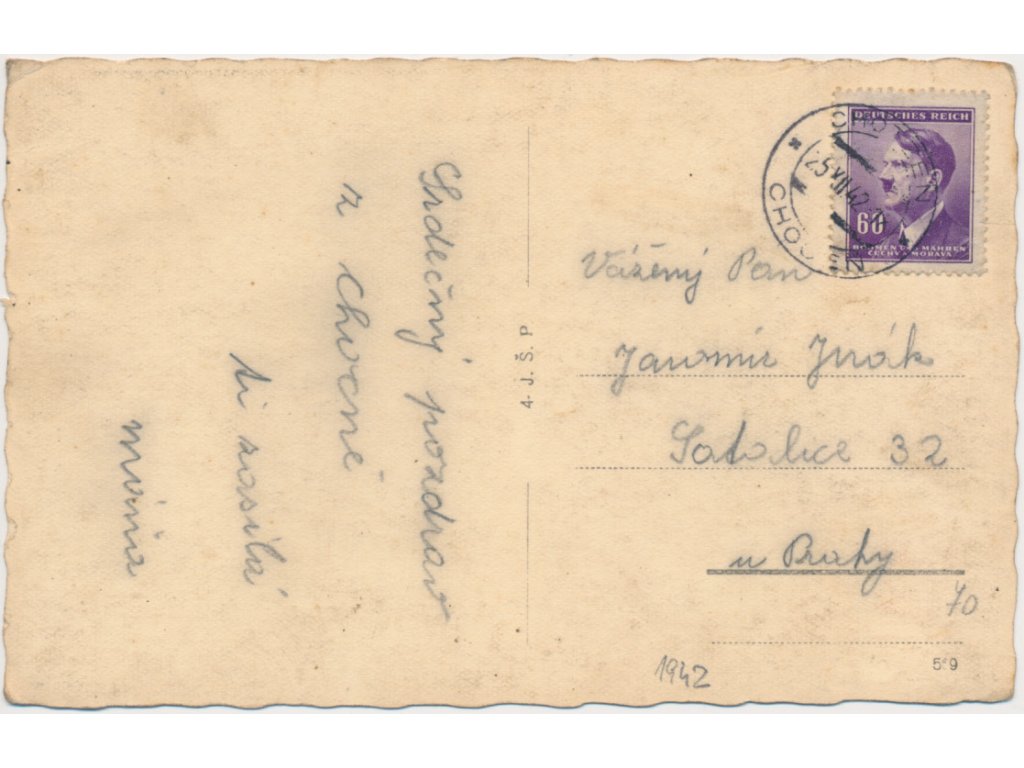 Srdečný pozdrav
z Chocně
ti zasílá
4 J. Š. P
DEUTSCHES REICH
60
BÖHMEN UND MÄHREN
ČECHY A MORAVA
CHOTZEN
25 XII 42
CHOCEŇ
Vážený Pan
Jaromír Jirák
Satalice 32
u Prahy
70
5*9
1942